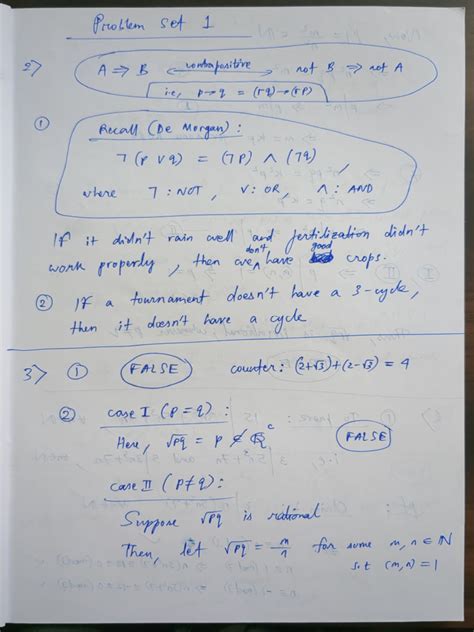 Problem Set 1
2> A ⇒ B ⟷ contrapositive not B ⇒ not A
i.e, p→q = (¬q)→(¬p)
① Recall (De Morgan):
¬(p ∨ q) = (¬p) ∧ (¬q),
where ¬ : NOT, ∨ : OR, ∧ : AND
If it didn't rain well and fertilization didn't
work properly, then we don't have good crops.
② If a tournament doesn't have a 3-cycle,
then it doesn't have a cycle
3> ① FALSE counter: (2+√3)+(2-√3) = 4
② case I (p=q):
Here, √pq = p ∉ ℚᶜ FALSE
case II (p≠q):
Suppose √pq is rational
Then, let √pq = m/n for some m, n ∈ ℕ
s.t (m,n) = 1